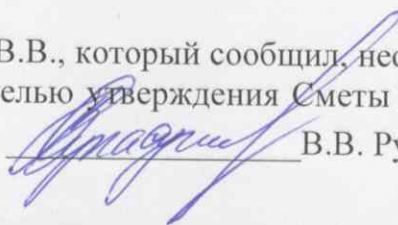 В.В., который сообщил, нео
елью утверждения Сметы
В.В. Ру